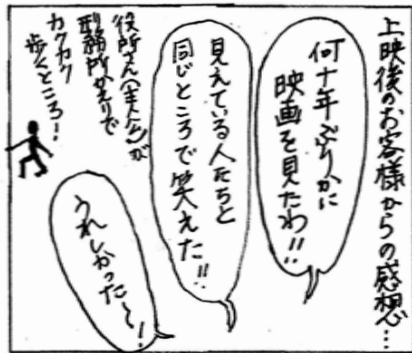 上映後のお客様からの感想…
何十年ぶりかに
映画を見たわ!!
見えている人たちと
同じところで笑えた!!
役所さん(主人公)が
刑務所がえりで
カクカク
歩くところ!
うれしかった〜!